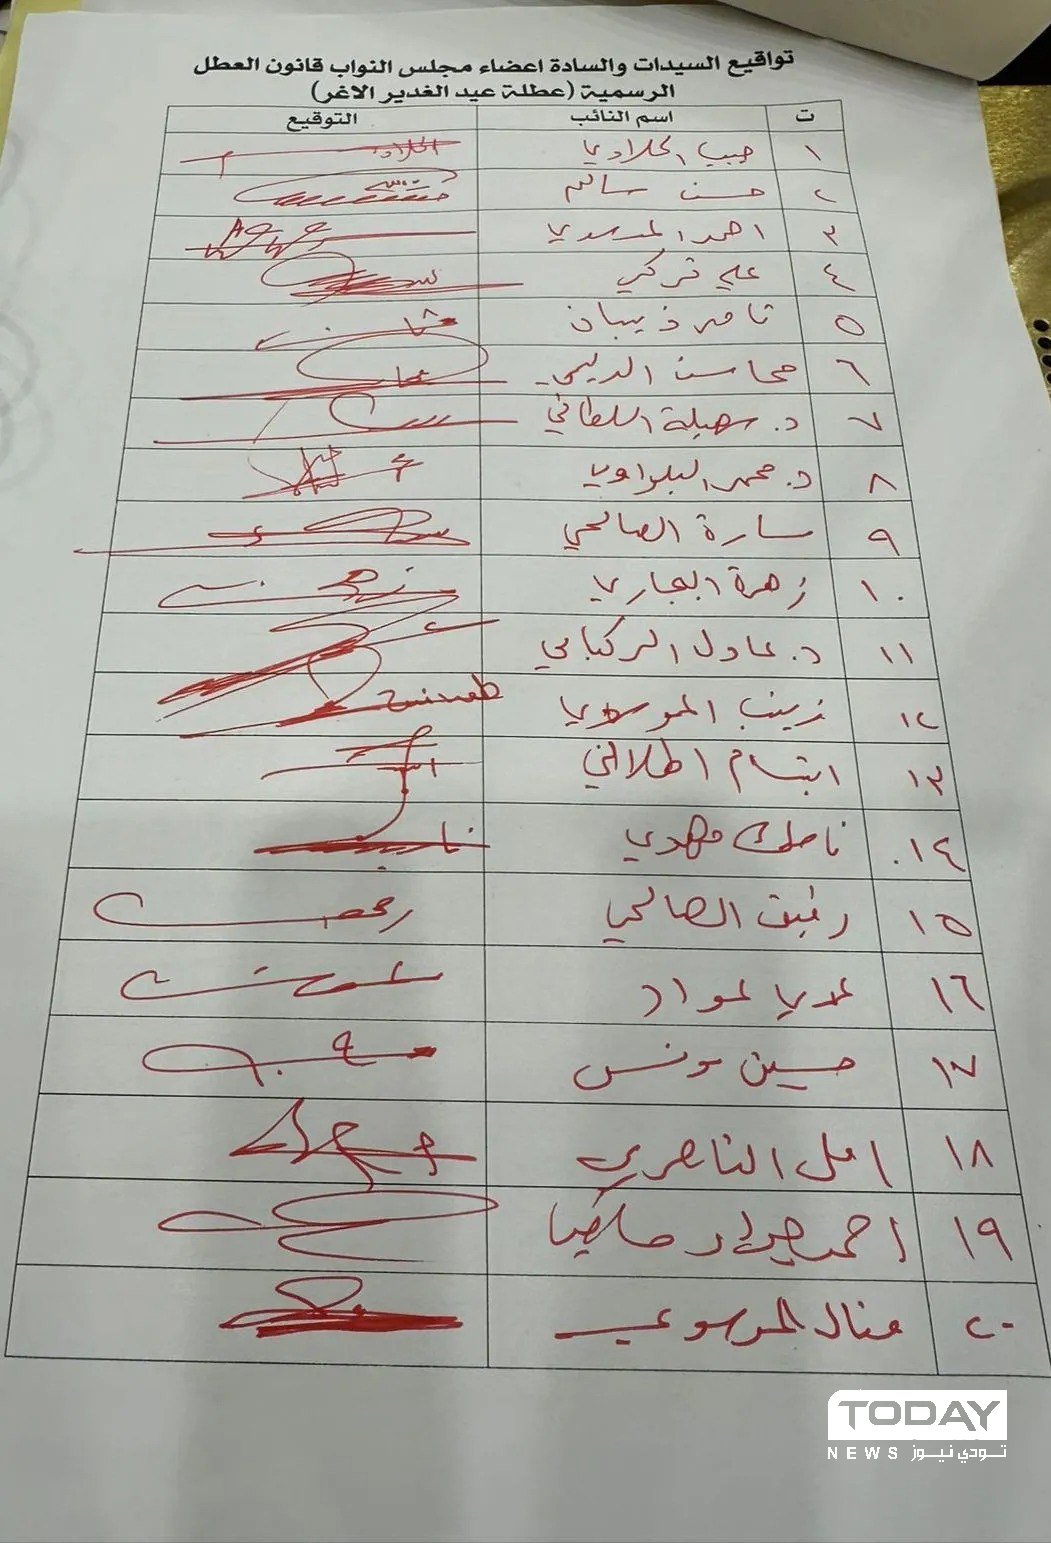 تواقيع السيدات والسادة اعضاء مجلس النواب قانون العطل
الرسمية (عطلة عيد الغدير الاغر)
ت اسم النائب التوقيع
١ حبيب الحلاوي
٢ حسن سالم
٣ احمد الموسوي
٤ علي تركي
٥ ثامر ذيبان
٦ محاسن الدليمي
٧ د. سهيلة السلطاني
٨ د. محمد البلداوي
٩ سارة الصالحي
١٠ زهرة البجاري
١١ د. عادل الركابي
١٢ زينب الموسوي
١٣ ابتسام الهلالي
١٤ مهدي
١٥ رفيق الصالحي
١٦ عدي عواد
١٧ حسين مونس
١٨ امل الناصري
١٩ احمد
٢٠ منال الموسوي
TODAY
NEWS تودي نيوز